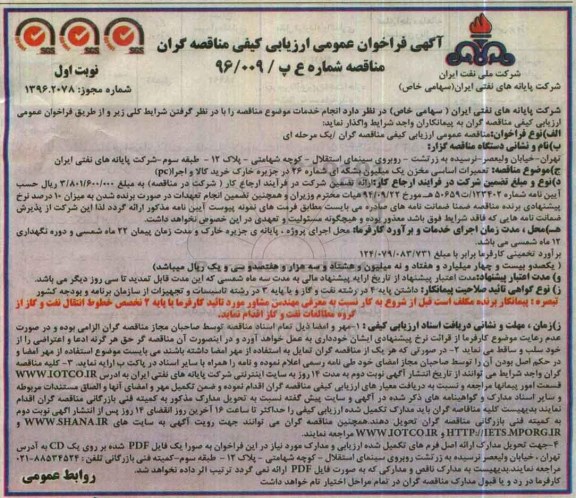 آگهی فراخوان عمومی ارزیابی کیفی مناقصه گران
مناقصه شماره ع پ / ۹۶/۰۰۹
نوبت اول
شماره مجوز: ۱۳۹۶.۲۰۷۸
شرکت ملی نفت ایران
شرکت پایانه های نفتی ایران(سهامی خاص)
SGS SGS SGS
شرکت پایانه های نفتی ایران ( سهامی خاص) در نظر دارد انجام خدمات موضوع مناقصه را با در نظر گرفتن شرایط کلی زیر و از طریق فراخوان عمومی
ارزیابی کیفی مناقصه گران به پیمانکاران واجد شرایط واگذار نماید:
الف)نوع فراخوان:مناقصه عمومی ارزیابی کیفی مناقصه گران /یک مرحله ای
ب)نام و نشانی دستگاه مناقصه گزار:
تهران-خیابان ولیعصر-نرسیده به زرتشت - روبروی سینمای استقلال - کوچه شهامتی - پلاک ۱۲ - طبقه سوم-شرکت پایانه های نفتی ایران
ج)موضوع مناقصه: تعمیرات اساسی مخزن یک میلیون بشکه ای شماره ۲۶ در جزیره خارک خرید کالا و اجرا(pc)
د)نوع و مبلغ تضمین شرکت در فرآیند ارجاع کار:ارائه تضمین شرکت در فرآیند ارجاع کار ( شرکت در مناقصه) به مبلغ ۳/۸۰۱/۶۰۰/۰۰۰ ریال حسب
آیین نامه شماره ۱۲۳۴۰۲/ت۵۰۶۵۹ه مورخ ۹۴/۰۹/۲۲ هیات محترم وزیران و همچنین تضمین انجام تعهدات در صورت برنده شدن به میزان ۱۰ درصد نرخ
پیشنهادی برنده مناقصه ضمنا ضمانت نامه های صادره می بایست مطابق فرمت های نمونه پیوست آیین نامه مذکور ارائه گردد لذا این شرکت از پذیرش
ضمانت نامه هایی که فاقد شرایط فوق باشد معذور بوده و هیچگونه مسئولیت و تعهدی در این خصوص نخواهد داشت.
هـ)محل ، مدت زمان اجرای خدمات و برآورد کارفرما: محل اجرای پروژه ، پایانه ی جزیره خارک و مدت زمان پیمان ۲۲ ماه شمسی و دوره نگهداری
۱۲ ماه شمسی می باشد.
برآورد تخمینی کارفرما برابر با مبلغ ۱۲۴/۰۷۹/۰۸۳/۷۳۱
( یکصدو بیست و چهار میلیارد و هفتاد و نه میلیون و هشتاد و سه هزار و هفتصدو سی و یک ریال میباشد)
و) مدت اعتبار پیشنهاد:مدت اعتبار پیشنهاد از تاریخ ارایه پیشنهاد مالی به مدت سه ماه شمسی که این مدت قابل تمدید تا سی روز دیگر می باشد.
ز) نوع گواهی تائید صلاحیت پیمانکار: داشتن پایه ۴ در رشته نفت و گاز و یا پایه ۲ در رشته تاسیسات و تجهیزات از سازمان برنامه و بودجه کشور
تبصره : پیمانکار برنده مکلف است قبل از شروع به کار نسبت به معرفی مهندس مشاور مورد تائید کارفرما با پایه ۲ تخصص خطوط انتقال نفت و گاز از
گروه مطالعات نفت و گاز اقدام نماید.
ژ)زمان ، مهلت و نشانی دریافت اسناد ارزیابی کیفی : ۱-مهر و امضا ذیل تمام اسناد مناقصه توسط صاحبان مجاز مناقصه گران الزامی بوده و در صورت
عدم رعایت موضوع کارفرما از قرائت نرخ پیشنهادی ایشان خودداری به عمل خواهد آورد و در اینصورت آن مناقصه گر حق هر گونه ادعا و اعتراضی را از
خود سلب و ساقط می نماید ۲- در صورتی که هر یک از مناقصه گران تمایل به استفاده از مهر امضا داشته باشند می بایست موضوع استفاده از مهر امضا و
در حکم اصل بودن آن را توسط صاحبان مجاز امضای خود طی نامه رسمی اعلام نموده و نامه را همراه با سایر اسناد در پاکت ب ارایه نمایند. ۳- کلیه مناقصه
گران واجد شرایط می توانند از تاریخ انتشار آگهی نوبت دوم به مدت ۱۴ روز به سایت اینترنتی شرکت پایانه های نفتی ایران به آدرس WWW.IOTCO.IR
قسمت امور پیمانها مراجعه و نسبت به دریافت معیار های ارزیابی کیفی مناقصه گران اقدام نموده و ضمن تکمیل مهر و امضای آنها و الصاق مستندات مربوطه
و سایر اسناد مدارک و گواهینامه های ذکر شده در آگهی و سایت پیش گفته نسبت به تحویل مدارک مذکور به کمیته فنی بازرگانی مناقصه گران اقدام
نمایند بدیهیست کلیه مناقصه گران باید مدارک تکمیل شده ارزیابی کیفی را حداکثر تا ساعت ۱۶ آخرین روز انقضای ۱۴ روز پس از انتشار آگهی نوبت دوم
به کمیته فنی بازرگانی مناقصه گران تحویل دهند.همچنین مناقصه گران می توانند جهت رویت آگهی به سایت های WWW.SHANA.IR و
HTTP://IETS.MPORG.IR و WWW.IOTCO.IR مراجعه نمایند.
۴-جهت تحویل مدارک ارائه اصل فرم های تکمیل شده ارزیابی و مدارک مورد نیاز در این فراخوان به صورت یک فایل PDF شده بر روی یک CD به آدرس
تهران ، خیابان ولیعصر نرسیده به زرتشت روبروی سینمای استقلال - کوچه شهامتی - پلاک ۱۲ - طبقه سوم-کمیته فنی بازرگانی تلفن : ۸۸۵۳۴۵۲۴-۰۲۱
مراجعه نمایند.بدیهیست به مدارک ناقص و مدارکی که به صورت فایل PDF ارائه نمی گردد ترتیب اثر داده نخواهد شد.
کارفرما در رد و یا قبول مدارک مناقصه گران در تمام مراحل اختیار تام خواهد داشت
روابط عمومی